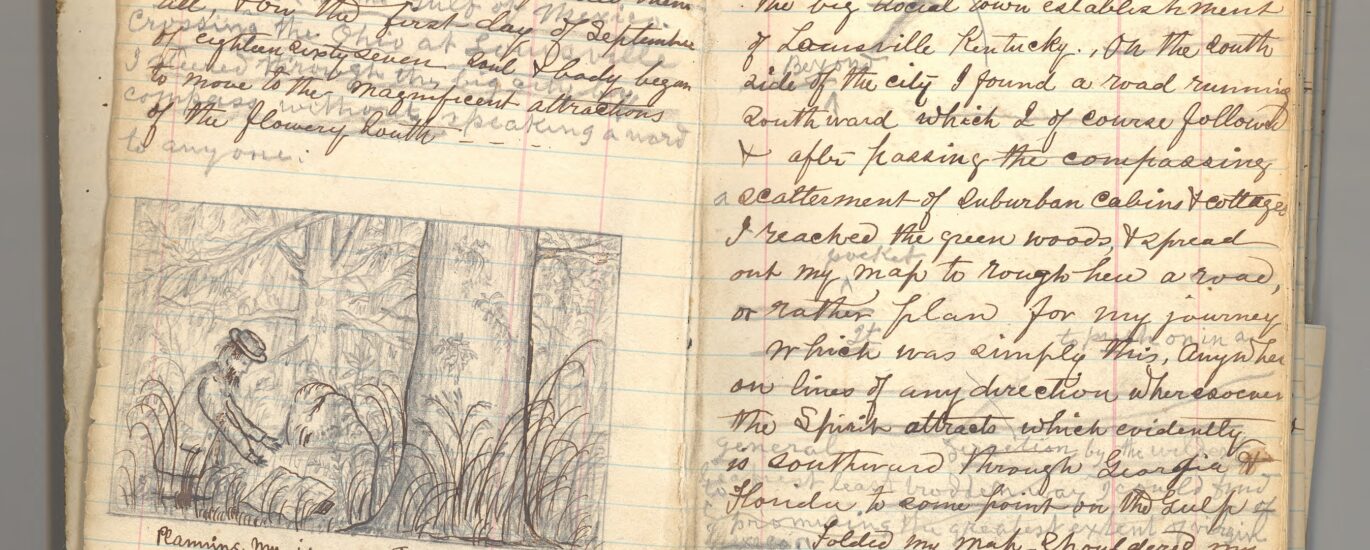 all, & on the first day of September
of eighteen sixty seven soul & body began
to move to the magnificent attractions
of the flowery South - - - -
crossing the Ohio at Louisville
I steered through the big city by
compass without speaking a word
to any one.
Planning my
the big social town establishment
of Louisville Kentucky., On the south
Beyond
side of the city I found a road running
southward which I of course followed
& after passing the compassing
a scatterment of suburban cabins & cottages
I reached the green woods, & spread
pocket
out my map to rough hew a road,
or rather plan for my journey
It
which was simply this, Anywhere
to push on in a
on lines of any direction wheresoever
the Spirit attracts which evidently
general direction by the
is southward through Georgia &
least trodden way I could find
Florida to some point on the Gulf of
promising the greatest extent of virgin
Folded my map, shouldered my